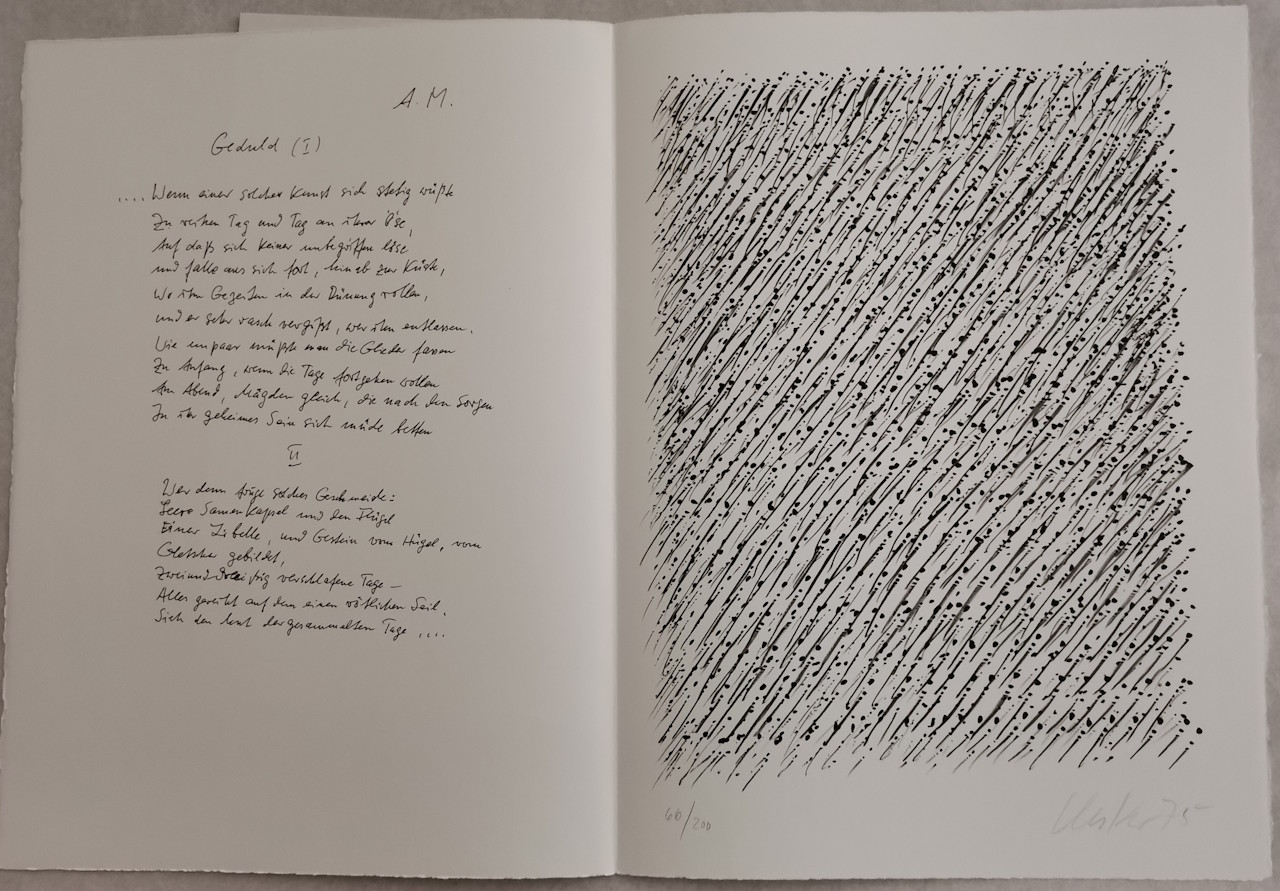 A. M.
Geduld (I)
.... Wenn einer solcher Kunst sich stetig wüßte
Zu reihen Tag und Tag an ihrer Öse,
Auf daß sich keiner unbegriffen löse
und falle aus sich fort, hinab zur Küste,
Wo ihm Gezeiten in der Dünung rollen,
und er sehr rasch vergißt, wer ihn entlassen.
Wie unpaar müßte man die Glieder fassen
Zu Anfang, wenn die Tage fortgehen wollen
Am Abend, Mägden gleich, die nach den Sorgen
In ihr geheimes Sein sich müde betten
II
Wer denn trüge solches Geschmeide:
Leere Samenkapsel und den Flügel
Einer Libelle, und Gestein vom Hügel, vom
Gletscher gebildet,
Zweiunddreißig verschlafene Tage —
Alles gereiht auf dem einen rötlichen Seil.
Sieh den der gesammelten Tage ....
60/200
Uecker 75